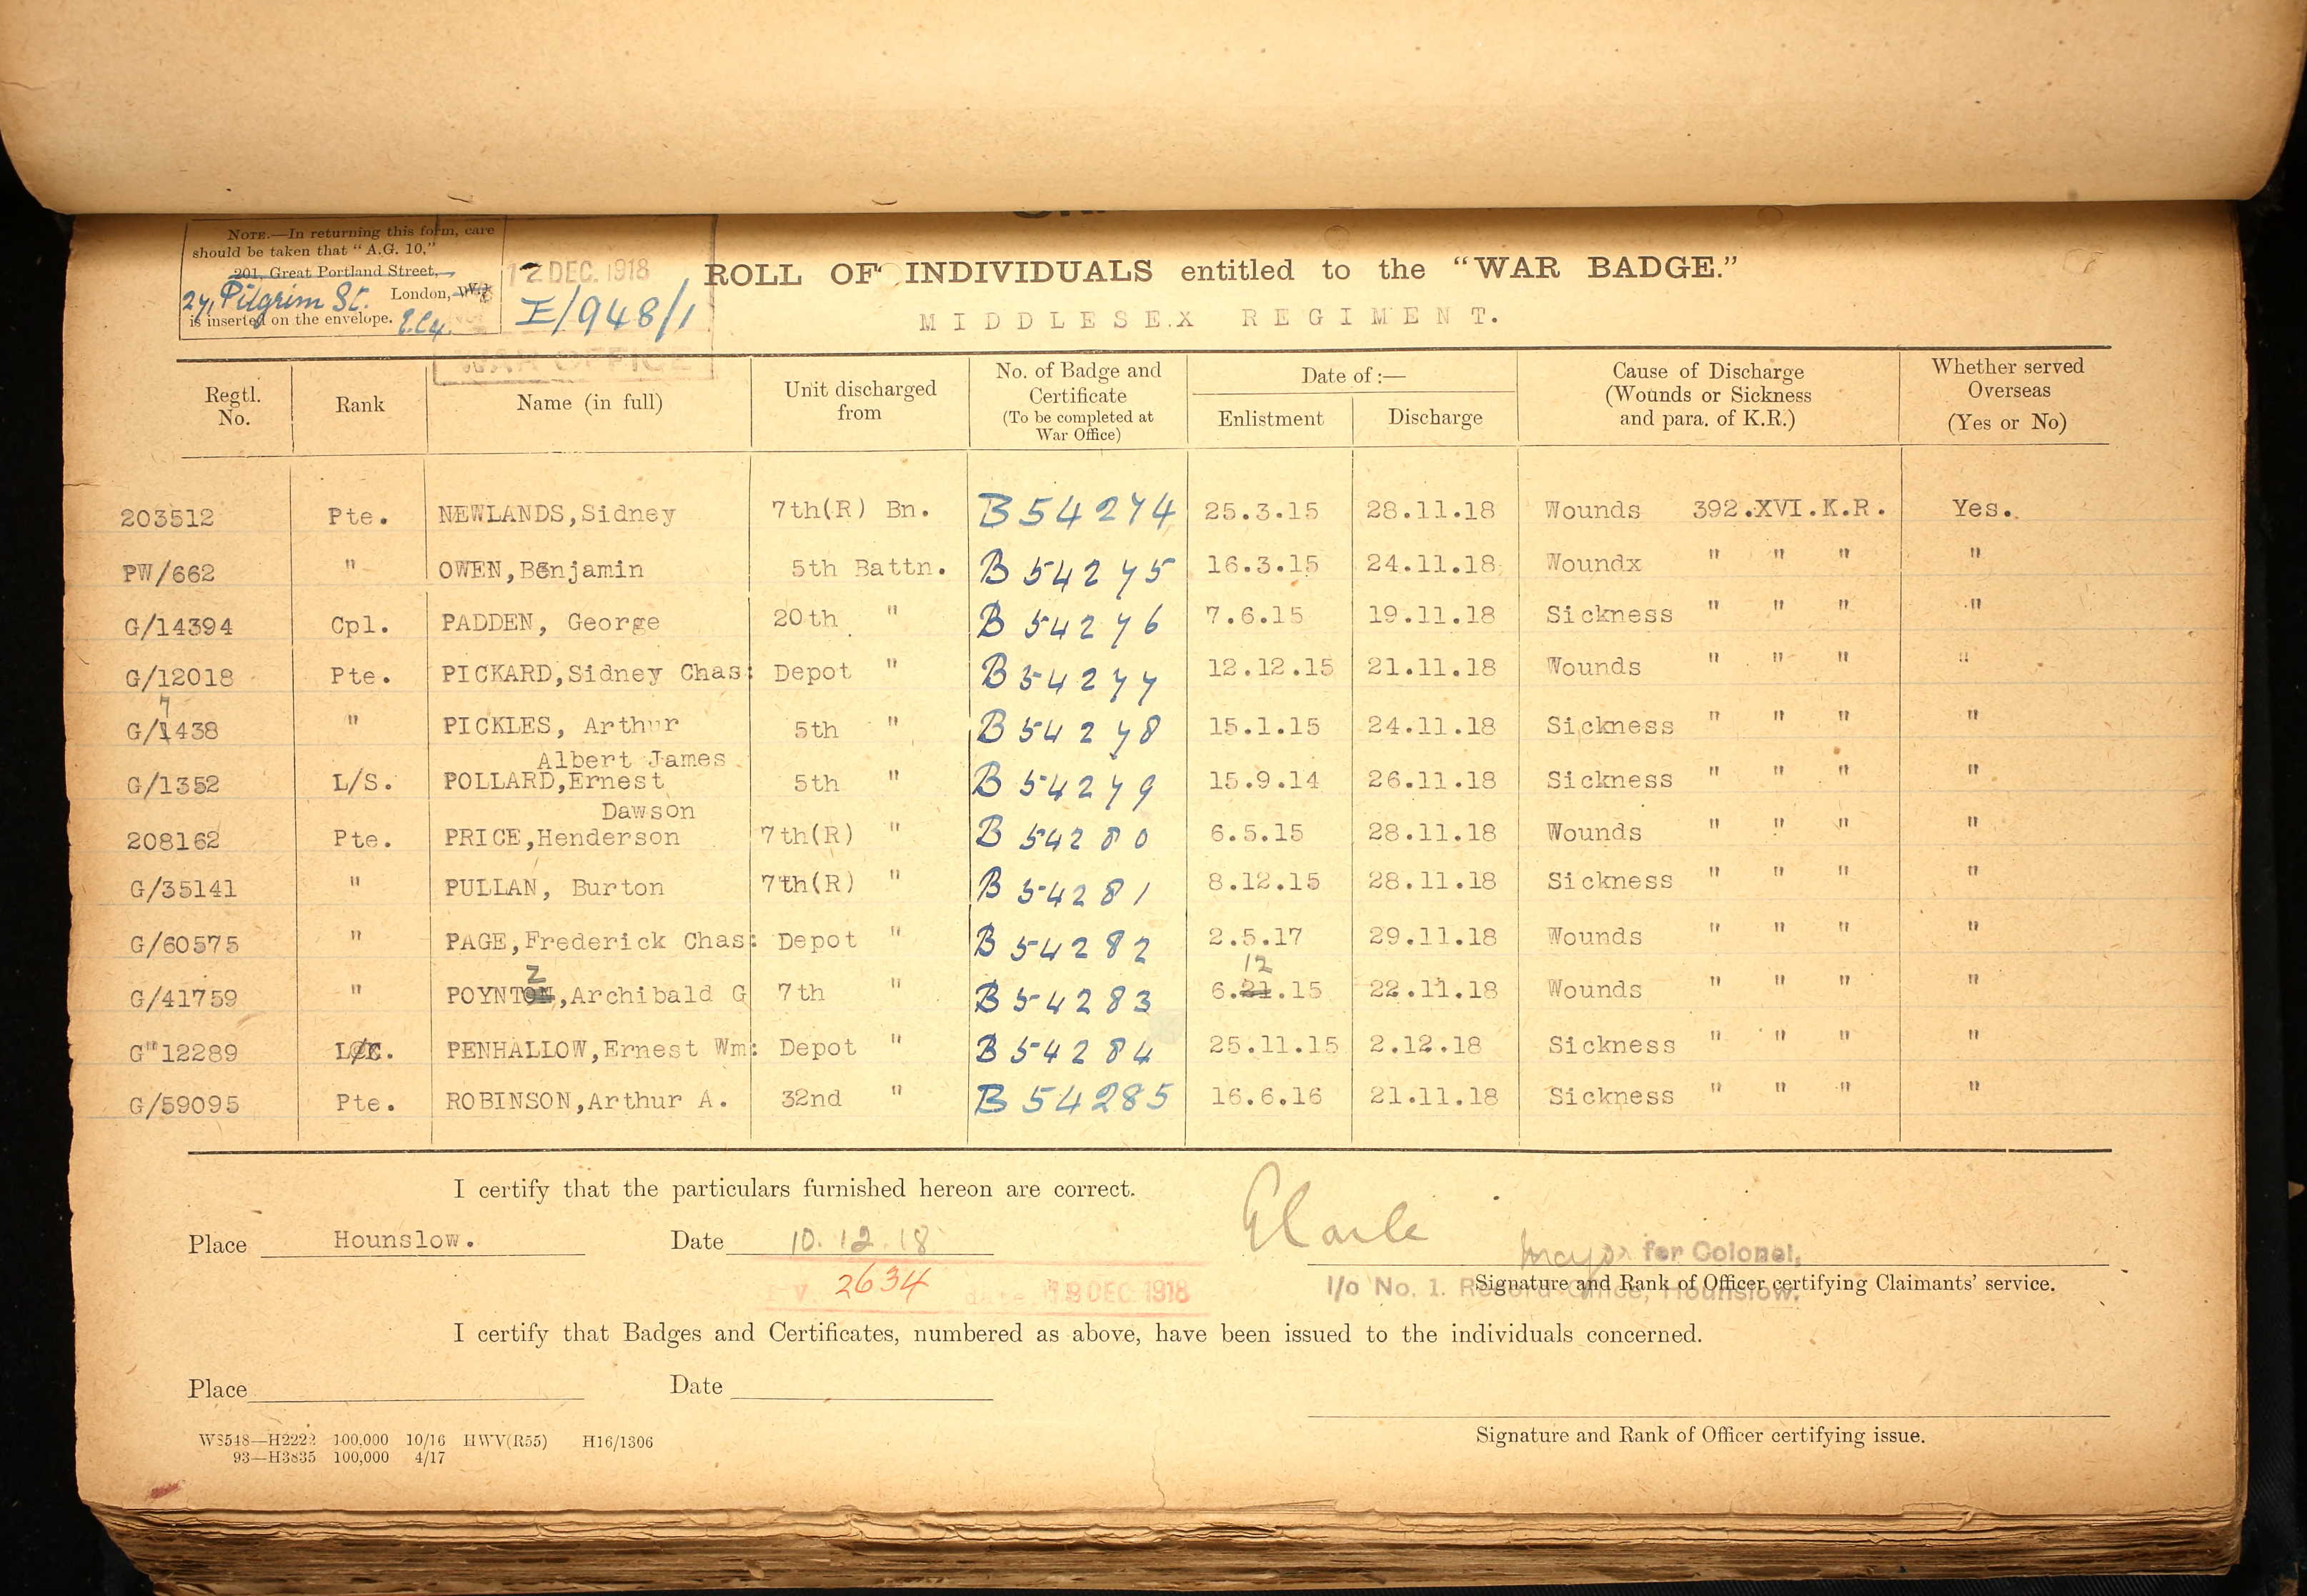 NOTE.—In returning this form, care
should be taken that "A.G. 10,"
201, Great Portland Street,
27, Pilgrim St. London, W.
is inserted on the envelope. E.C.4.
12 DEC. 1918
I/948/1
WAR OFFICE
ROLL OF INDIVIDUALS entitled to the "WAR BADGE."
MIDDLESEX REGIMENT.
Regtl. No. Rank Name (in full) Unit discharged from No. of Badge and Certificate (To be completed at War Office) Date of :— Enlistment Discharge Cause of Discharge (Wounds or Sickness and para. of K.R.) Whether served Overseas (Yes or No)
203512 Pte. NEWLANDS,Sidney 7th(R) Bn. B 54274 25.3.15 28.11.18 Wounds 392.XVI.K.R. Yes.
PW/662 " OWEN,Benjamin 5th Battn. B 54275 16.3.15 24.11.18 Woundx " " " "
G/14394 Cpl. PADDEN, George 20th " B 54276 7.6.15 19.11.18 Sickness " " " "
G/12018 Pte. PICKARD,Sidney Chas: Depot " B 54277 12.12.15 21.11.18 Wounds " " " "
7
G/1438 " PICKLES, Arthur 5th " B 54278 15.1.15 24.11.18 Sickness " " " "
Albert James
G/1352 L/S. POLLARD,Ernest 5th " B 54279 15.9.14 26.11.18 Sickness " " " "
Dawson
208162 Pte. PRICE,Henderson 7th(R) " B 54280 6.5.15 28.11.18 Wounds " " " "
G/35141 " PULLAN, Burton 7th(R) " B 54281 8.12.15 28.11.18 Sickness " " " "
G/60575 " PAGE,Frederick Chas: Depot " B 54282 2.5.17 29.11.18 Wounds " " " "
Z 12
G/41759 " POYNTON,Archibald G 7th " B 54283 6.21.15 22.11.18 Wounds " " " "
G"12289 L/C. PENHALLOW,Ernest Wm: Depot " B 54284 25.11.15 2.12.18 Sickness " " " "
G/59095 Pte. ROBINSON,Arthur A. 32nd " B 54285 16.6.16 21.11.18 Sickness " " " "
I certify that the particulars furnished hereon are correct.
Place Hounslow. Date 10.12.18
Major for Colonel,
Signature and Rank of Officer certifying Claimants' service.
I/o No. 1. Record Office, Hounslow.
V. 2634 date 18 DEC 1918
I certify that Badges and Certificates, numbered as above, have been issued to the individuals concerned.
Place Date
Signature and Rank of Officer certifying issue.
W3548—H2222 100,000 10/16 HWV(R55) H16/1306
93—H3835 100,000 4/17